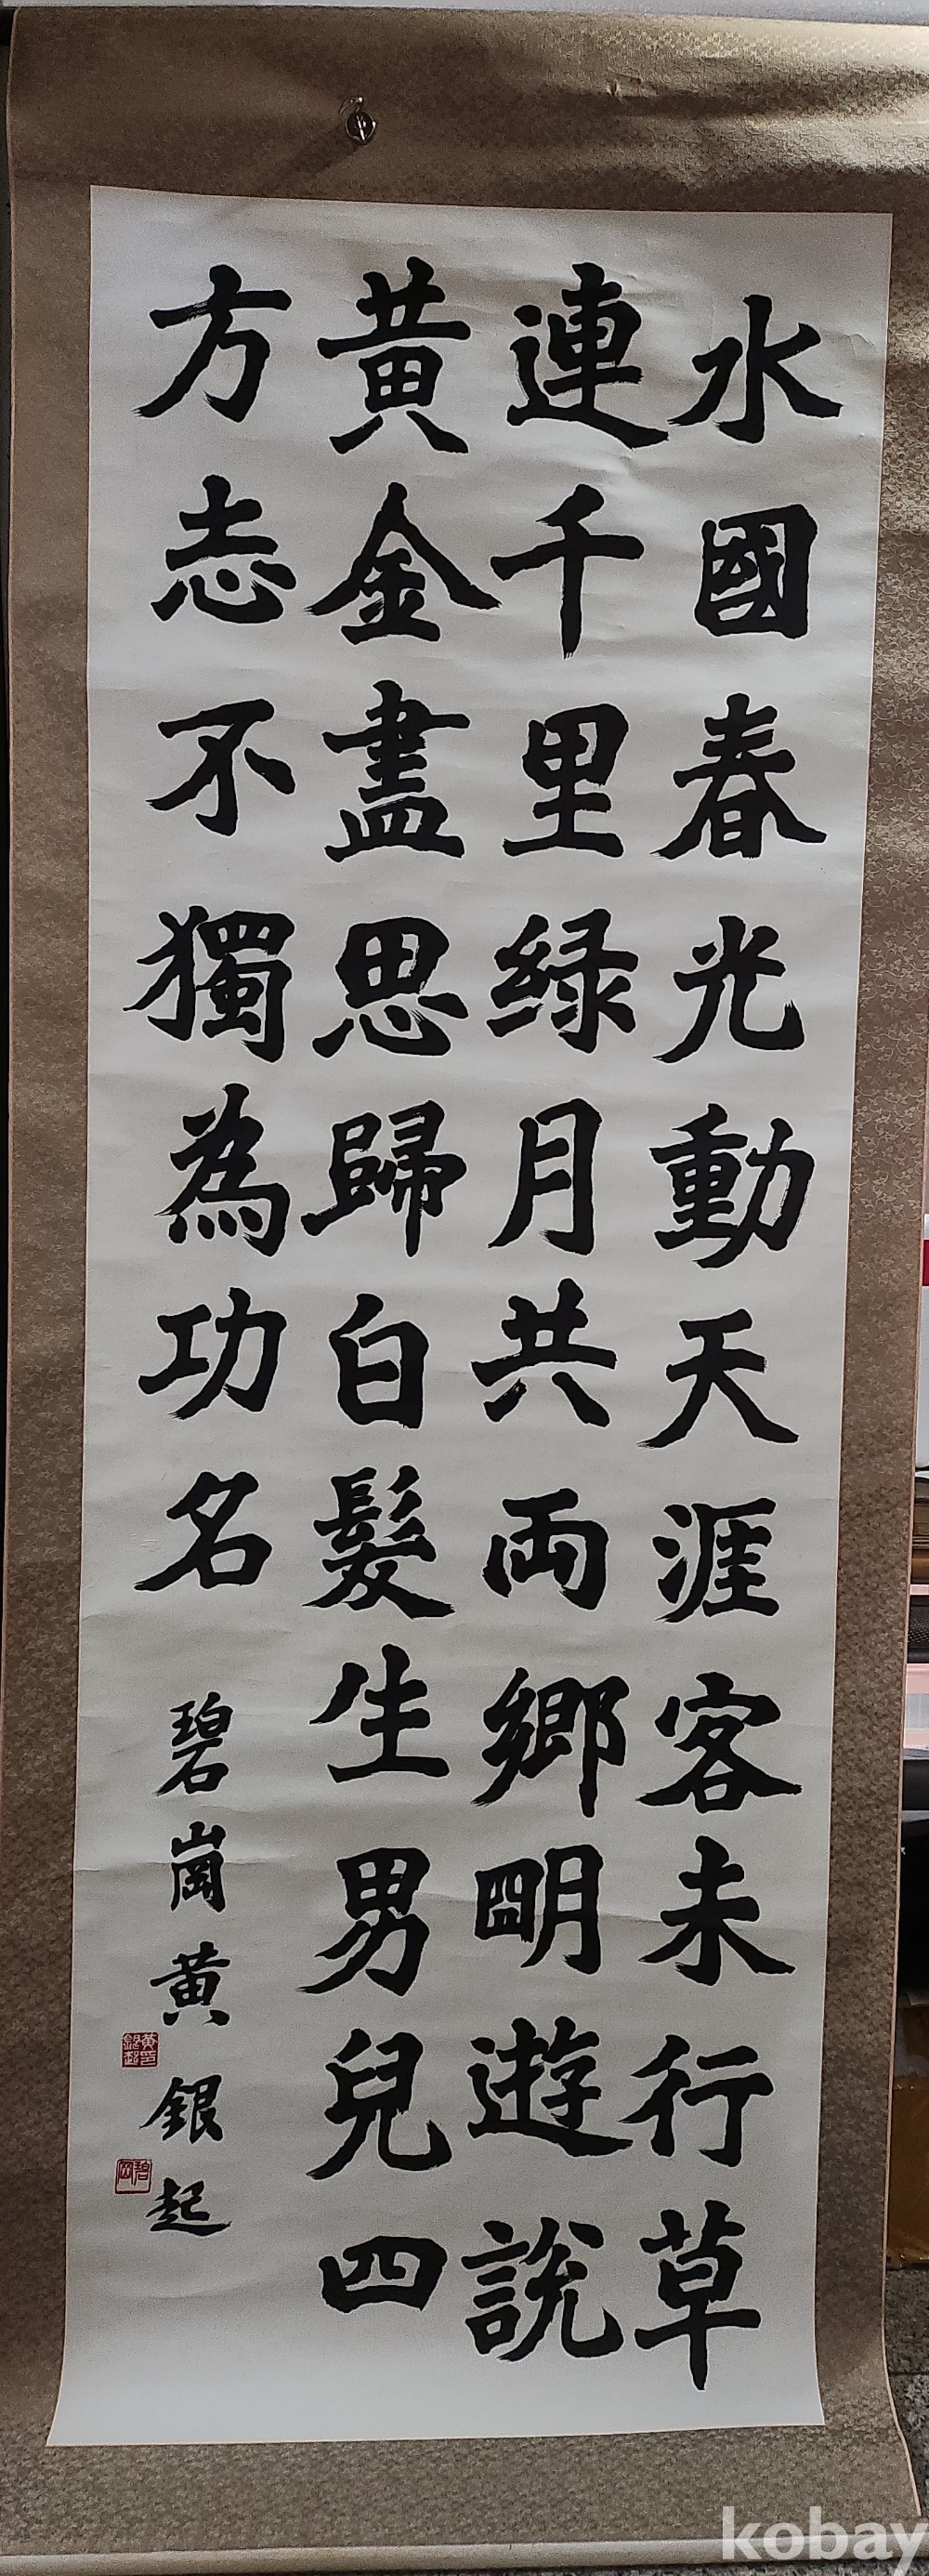 水國春光動天涯客未行草
連千里緑月共両鄉明遊說
黃金盡思歸白髮生男兒四
方志不獨為功名
碧崗黃銀起
黃銀起印
碧崗
kobay